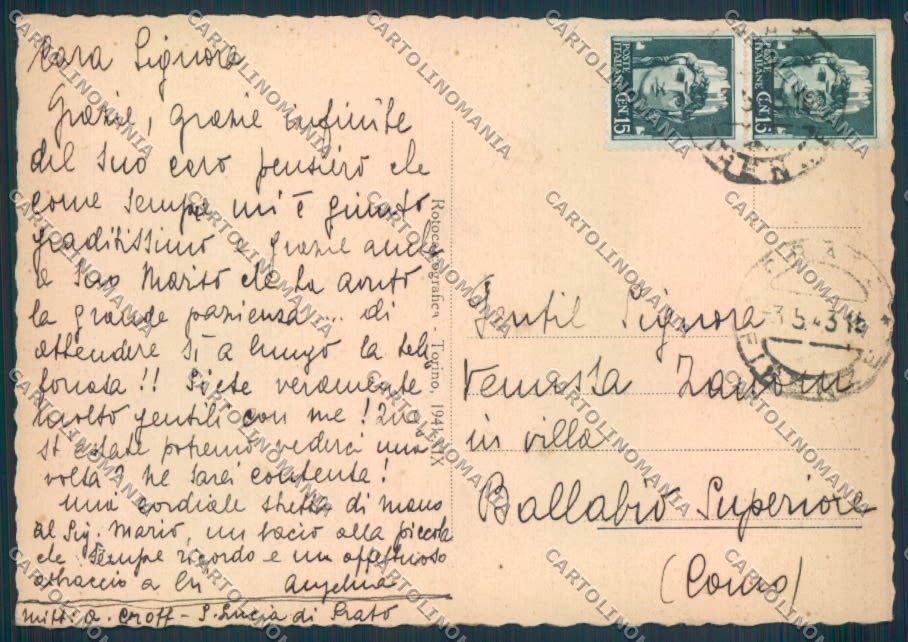 Cara Signora
Grazie, grazie infinite
del suo caro pensiero che
come sempre mi è giunto
graditissimo e grazie anche
a Suo Marito che ha avuto
la grande pazienza... di
attendere sì a lungo la tele
fonata!! Siete veramente
molto gentili con me! Que
st'estate potremo vederci una
volta? Ne sarei contenta!
Una cordiale stretta di mano
al Sig. Mario, un bacio alla piccola
che sempre ricordo e un affettuoso
abbraccio a lei Angelina
mitt: A. Croff - S. Lucia di Prato
Rotocalcografica - Torino, 1941-XIX
POSTE ITALIANE CEN. 15
POSTE ITALIANE CEN. 15
3.5.43.15
Gentil Signora
Zanoni
in villa
Ballabio Superiore
(Como)
CARTOLINOMANIA